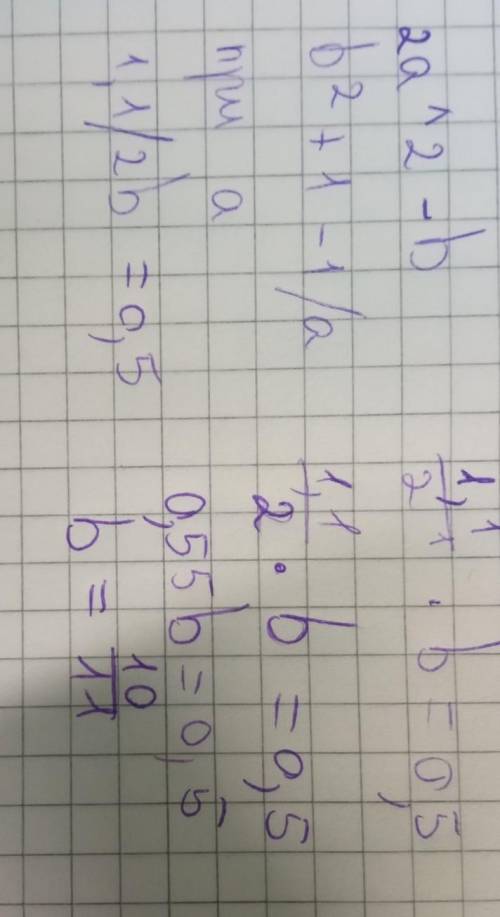 2a^2-b
b^2+1-1/a
при a
1,1/2b =0,5
1,1/2 · b = 0,5
1,1/2 · b = 0,5
0,55b = 0,5
b = 10/11